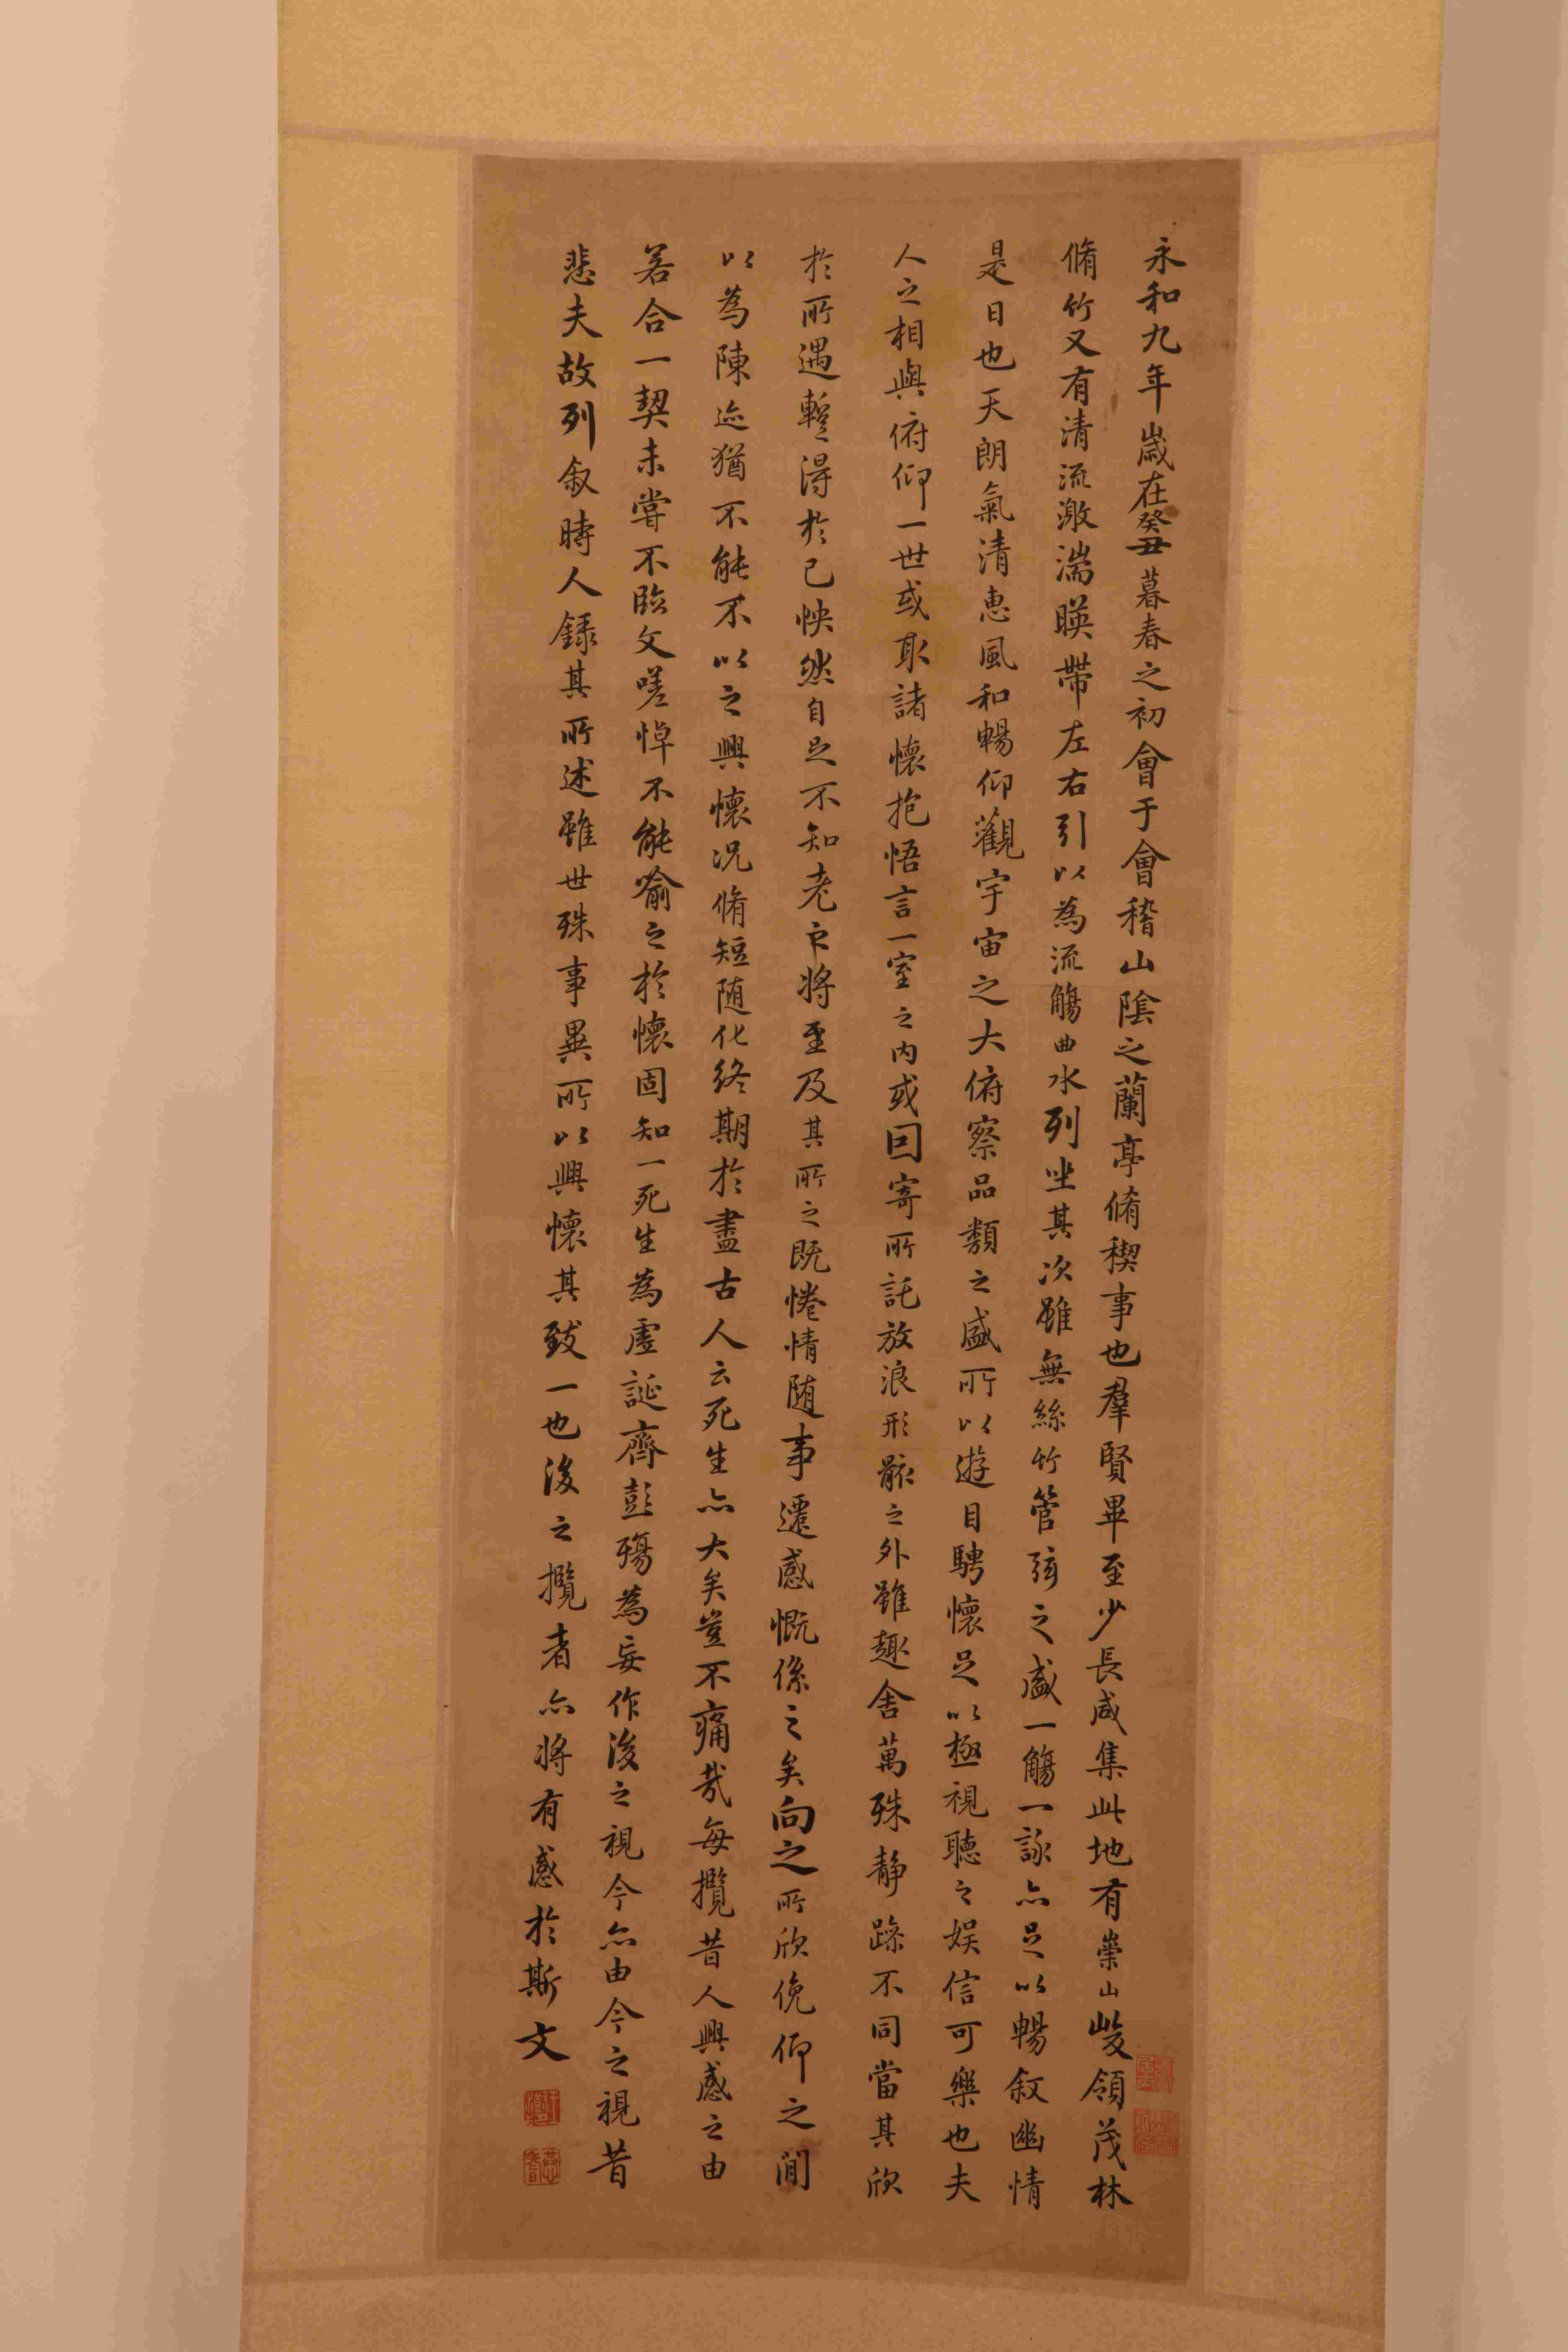 永和九年歲在癸丑暮春之初會于會稽山陰之蘭亭脩稧事也羣賢畢至少長咸集此地有崇山峻領茂林
脩竹又有清流激湍暎帶左右引以為流觴曲水列坐其次雖無絲竹管弦之盛一觴一詠亦足以暢叙幽情
是日也天朗氣清惠風和暢仰觀宇宙之大俯察品類之盛所以遊目騁懷足以極視聽之娛信可樂也夫
人之相與俯仰一世或取諸懷抱悟言一室之內或因寄所託放浪形骸之外雖趣舍萬殊靜躁不同當其欣
於所遇蹔得於己怏然自足不知老之將至及其所之既惓情隨事遷感慨係之矣向之所欣俛仰之閒
以為陳迹猶不能不以之興懷況脩短隨化終期於盡古人云死生亦大矣豈不痛哉每攬昔人興感之由
若合一契未嘗不臨文嗟悼不能喻之於懷固知一死生為虛誕齊彭殤為妄作後之視今亦由今之視昔
悲夫故列叙時人錄其所述雖世殊事異所以興懷其致一也後之攬者亦將有感於斯文